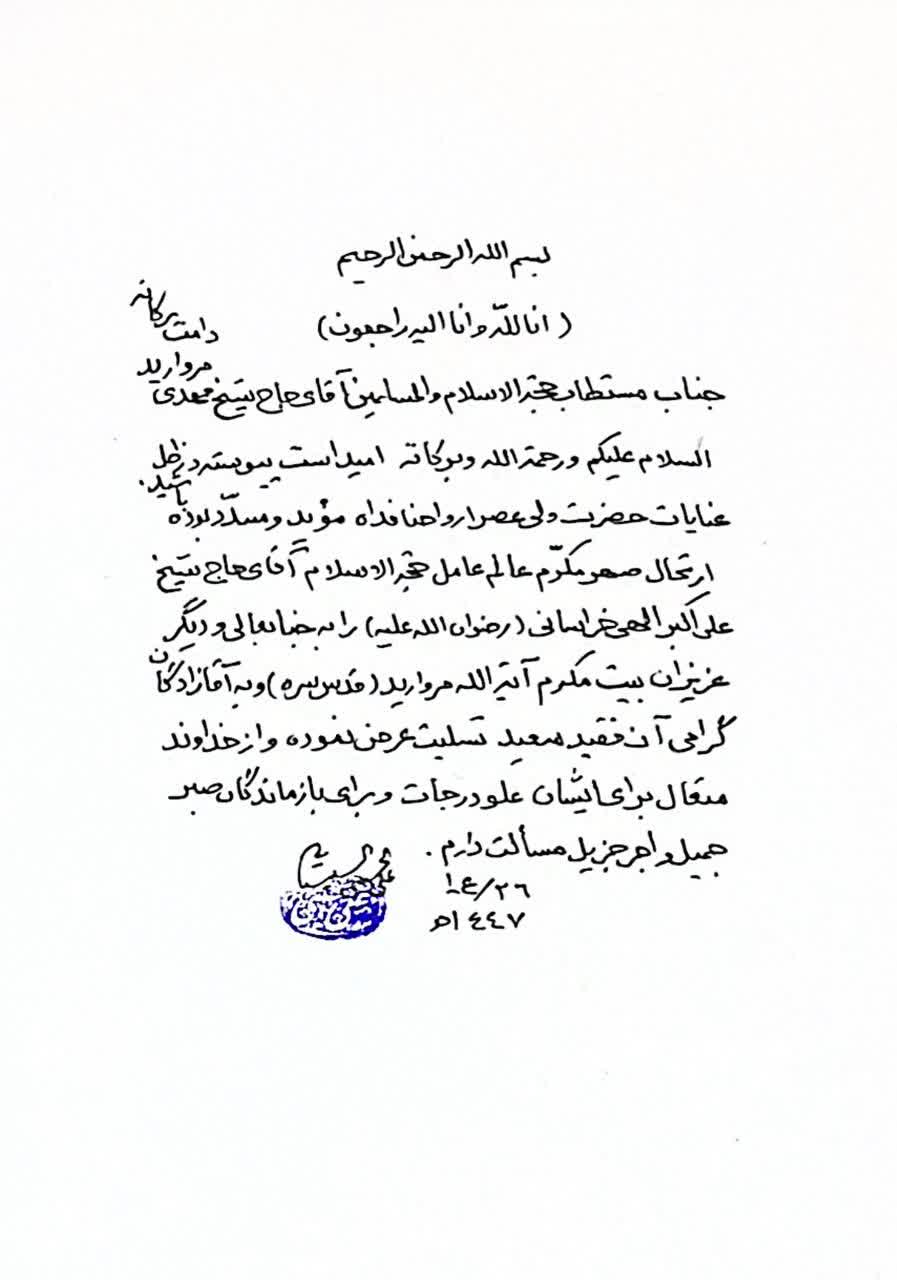 بسم الله الرحمن الرحیم
(انا لله و انا الیه راجعون)
جناب مستطاب حجة الاسلام والمسلمین آقای حاج شیخ مهدی مروارید دامت برکاته
السلام علیکم ورحمة الله وبرکاته امید است پیوسته در ظل
عنایات حضرت ولی عصر ارواحنا فداه مؤید و مسدّد بوده باشید.
ارتحال صهر مکرّم عالم عامل حجة الاسلام آقای حاج شیخ
علی اکبر الهی خراسانی (رضوان الله علیه) را به جنابعالی و دیگر
عزیزان بیت مکرم آیة الله مروارید (قدس سره) و به آقازادگان
گرامی آن فقید سعید تسلیت عرض نموده و از خداوند
متعال برای ایشان علو درجات و برای بازماندگان صبر
جمیل و اجر جزیل مسألت دارم.
٢٦/ع١
١٤٤٧ھ